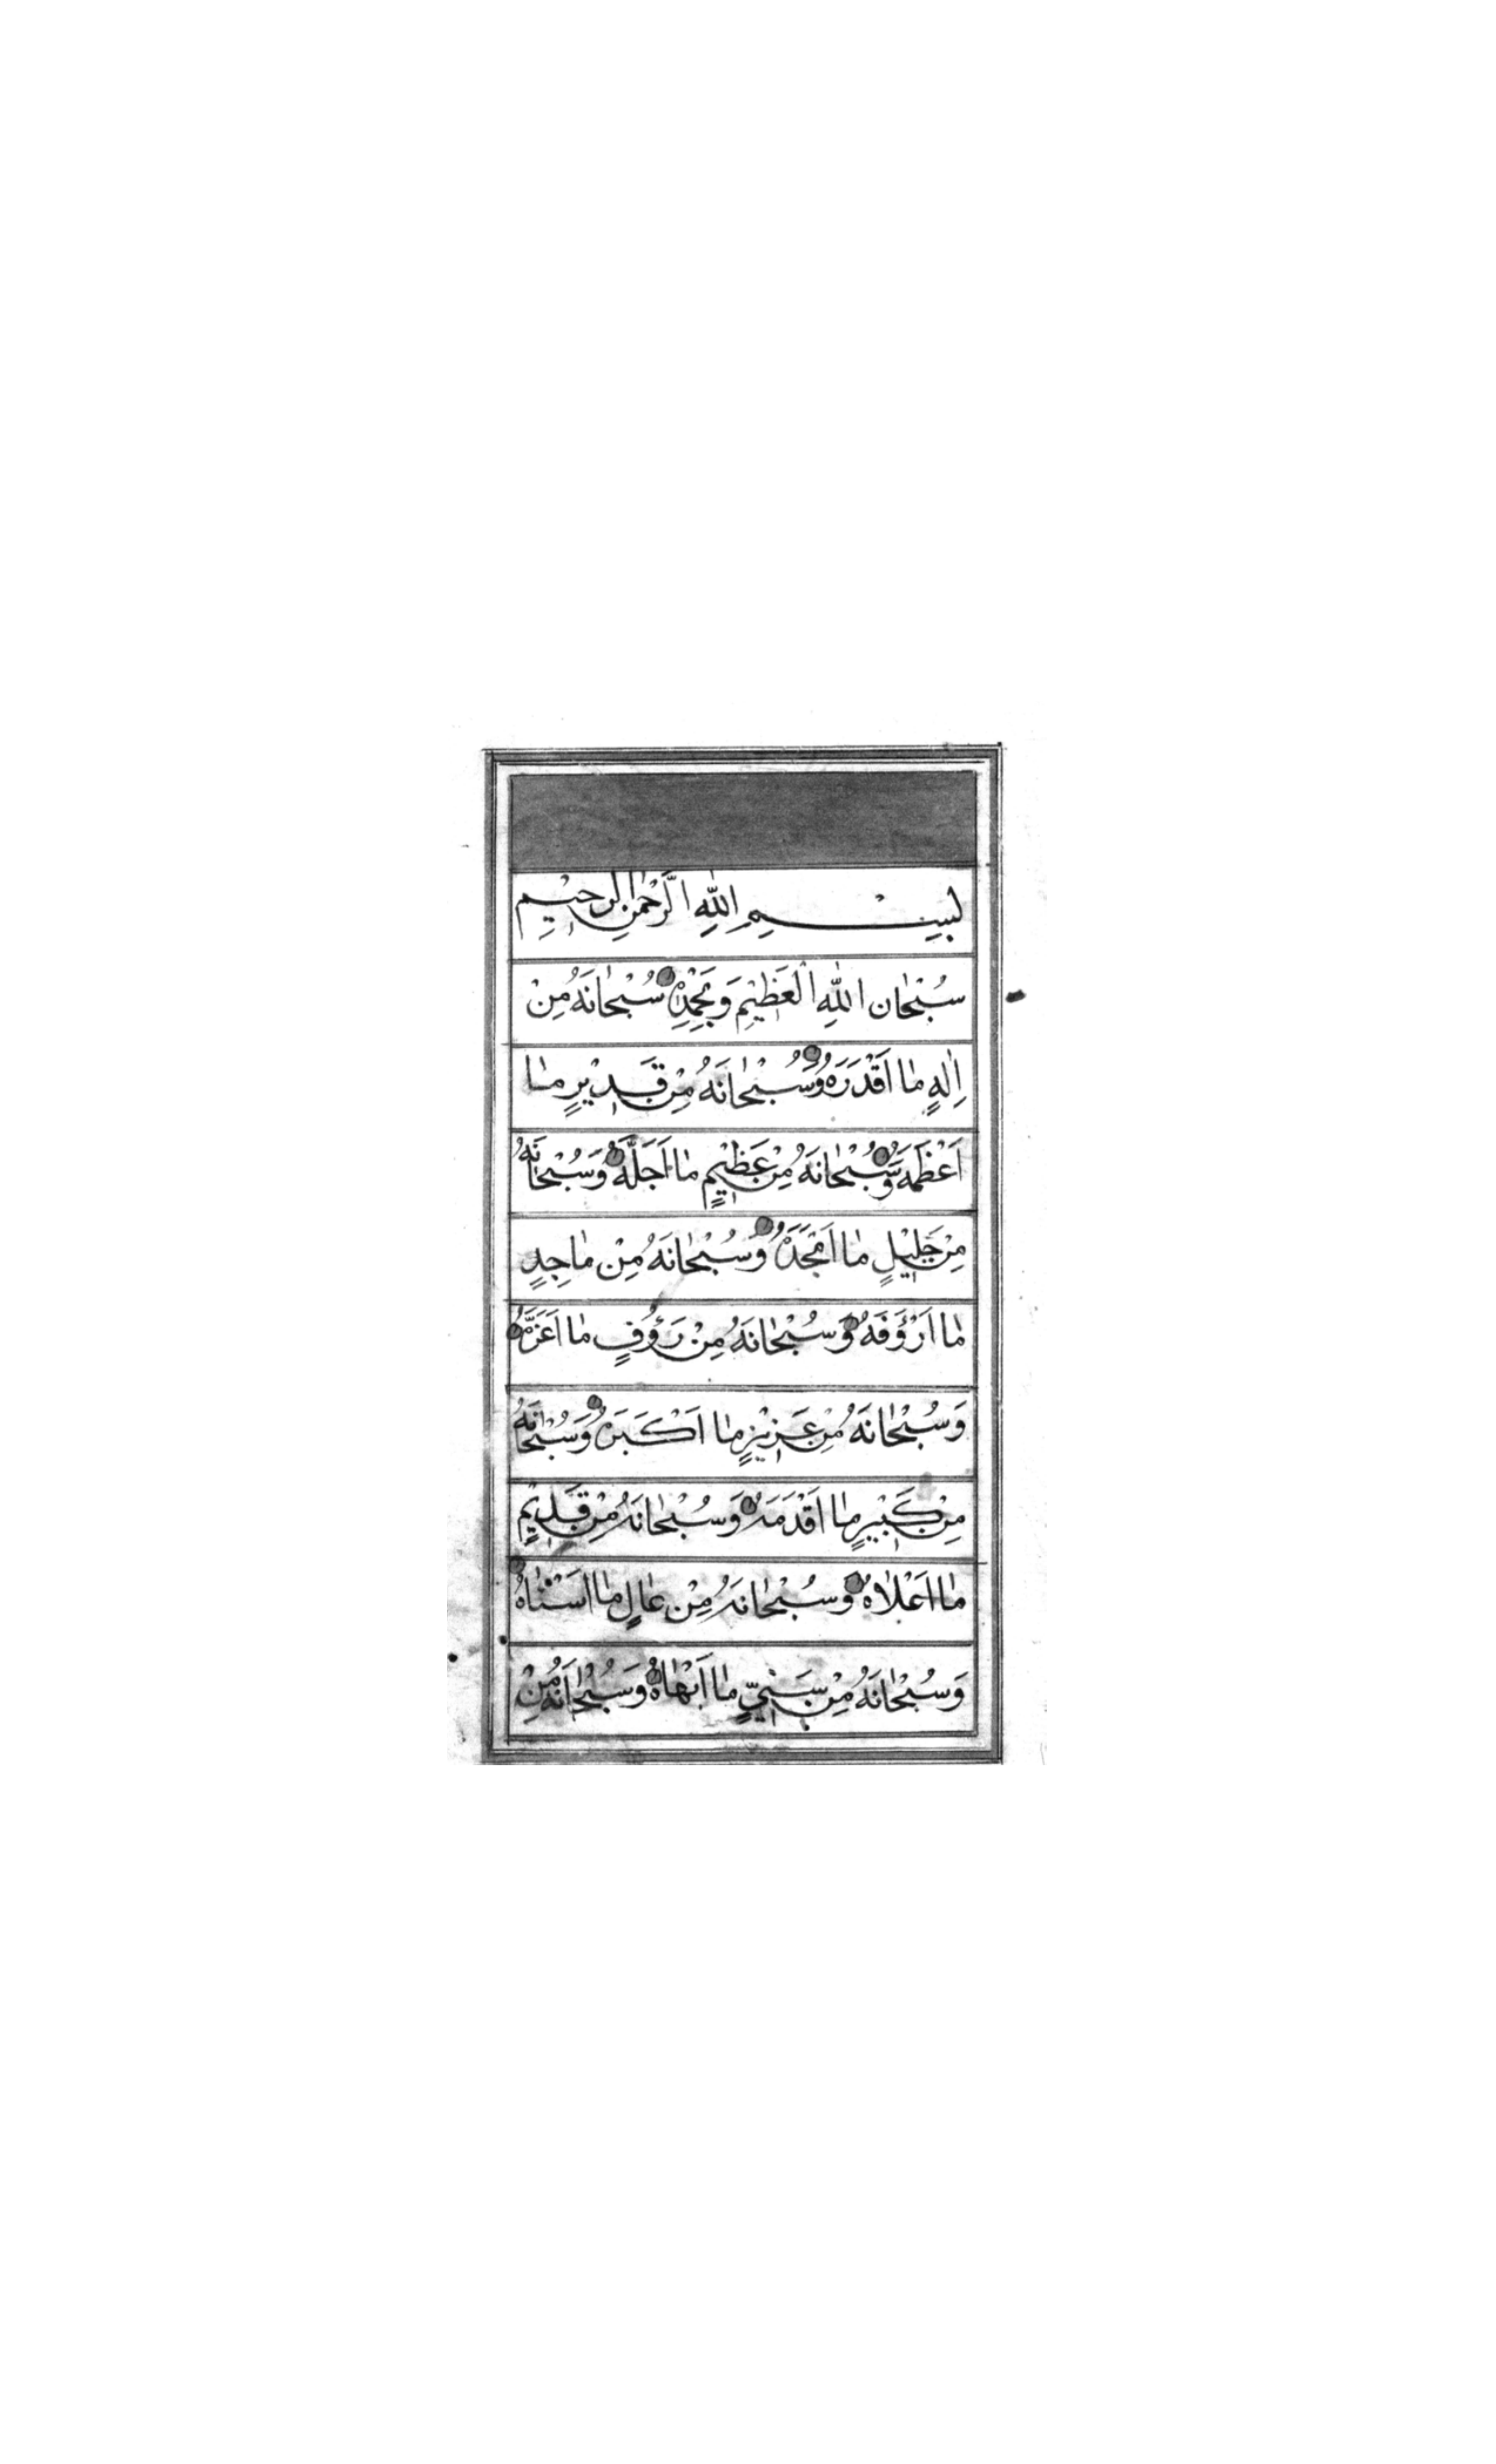 بِسْمِ اللّٰهِ الرَّحْمٰنِ الرَّحِيْمِ
سُبْحٰان اللّٰهِ الْعَظِيْمِ وَبِحَمْدِهِ سُبْحٰانَهُ مِنْ
اِلٰهٍ مٰا اَقْدَرَهُ وَسُبْحٰانَهُ مِنْ قَدِيْرٍ مٰا
اَعْظَمَهُ وَسُبْحٰانَهُ مِنْ عَظِيْمٍ مٰا اَجَلَّهُ وَسُبْحٰانَهُ
مِنْ جَلِيْلٍ مٰا اَمْجَدَهُ وَسُبْحٰانَهُ مِنْ مٰاجِدٍ
مٰا اَرْؤَفَهُ وَسُبْحٰانَهُ مِنْ رَؤُفٍ مٰا اَعَزَّهُ
وَسُبْحٰانَهُ مِنْ عَزِيْزٍ مٰا اَكْبَرَهُ وَسُبْحٰانَهُ
مِنْ كَبِيْرٍ مٰا اَقْدَمَهُ وَسُبْحٰانَهُ مِنْ قَدِيْمٍ
مٰا اَعْلٰاهُ وَسُبْحٰانَهُ مِنْ عٰالٍ مٰا اَسْنٰاهُ
وَسُبْحٰانَهُ مِنْ سَنِيٍّ مٰا اَبْهٰاهُ وَسُبْحٰانَهُ مِنْ